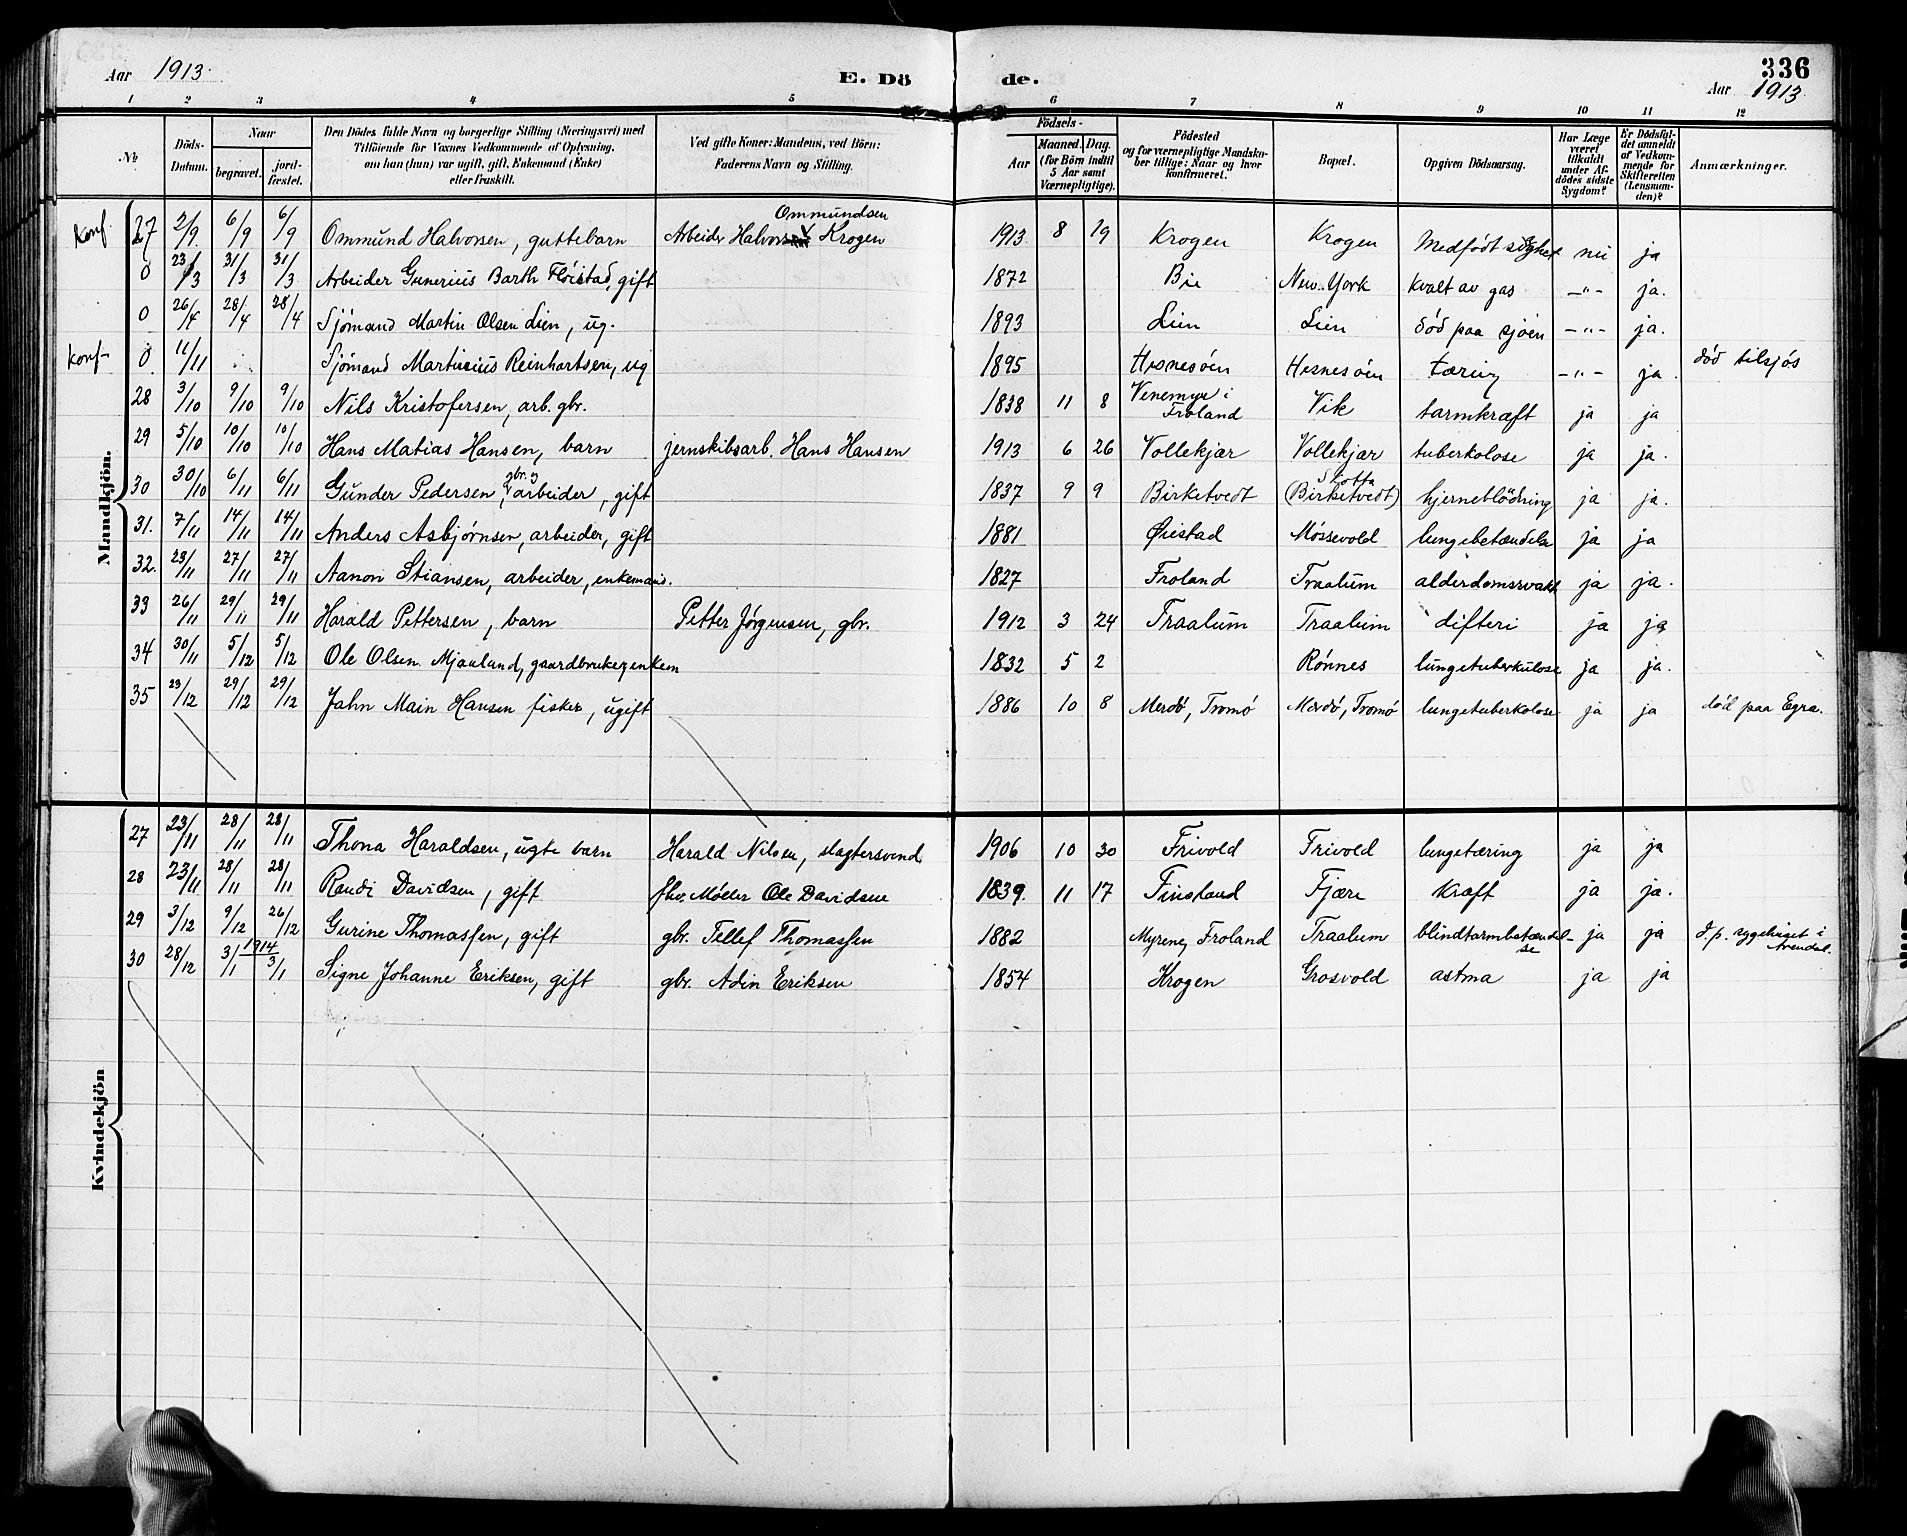 Aar 1913.
E. Dö
de.
336
Aar 1913
1 2 3 4 5 6 7 8 9 10 11 12
№
Döds-Datum.
Naar
begravet.
jord-fæstet.
Den Dödes fulde Navn og borgerlige Stilling (Næringsvei) med
Tilföiende for Voxnes Vedkommende af Oplysning,
om han (hun) var ugift, gift, Enkemand (Enke)
eller fraskilt.
Ved gifte Koner: Mandens, ved Börn:
Faderens Navn og Stilling.
Födsels-
Aar
Maaned. Dag.
(for Börn indtil
5 Aar samt
Værnepligtige).
Födested
og for værnepligtige Mandska-
ber tillige: Naar og hvor
konfirmeret.
Bopæl.
Opgiven Dödsaarsag.
Har Læge
været
tilkaldt
under Af-
dödes sidste
Sygdom?
Er Dödsfal-
det anmeldt
af Vedkom-
mende for
Skifteretten
(Lensman-
den)?
Anmærkninger.
Mandkjön.
Konf. 27 2/9 6/9 6/9 Ommund Halvorsen, guttebarn Arbeider Halvor Ommundsen Krogen 1913 8 19 Krogen Krogen Medfødt nei ja
0 23/3 31/3 31/3 Arbeider Gunerius Barth Fløistad, gift 1872 Bie New-York kvalt av gas -"- ja.
0 26/4 28/4 28/4 Sjömand Martin Olsen Lien, ug. 1893 Lien Lien død paa sjøen -"- ja.
Konf- 0 11/11 Sjömand Martinius Reinhartsen, ug 1895 Hesnesöen Hesnesöen tæring -"- ja. død tilsjøs
28 3/10 9/10 9/10 Nils Kristofersen, arb. gbr. 1838 11 8 Venemyr i Froland Vik tarmkræft ja ja
29 5/10 10/10 10/10 Hans Matias Hansen, barn jernskibsarb. Hans Hansen 1913 6 26 Vollekjær Vollekjær tuberkolose ja ja.
30 30/10 6/11 6/11 Gunder Pedersen, gbr. og arbeider, gift 1837 9 9 Birketvedt Slotta (Birketvedt) hjerneblödning ja ja.
31. 7/11 14/11 14/11 Anders Asbjørnsen, arbeider, gift 1881 Øiestad Møssevold lungebetændelse ja ja
32. 23/11 27/11 27/11 Aanon Stiansen, arbeider, enkemand. 1827 Froland Traalum alderdomssvakh. ja ja.
33 26/11 29/11 29/11 Harald Pettersen, barn Petter Jørgensen, gbr. 1912 3 24 Traalum Traalum difteri ja ja
34 30/11 5/12 5/12 Ole Olsen Mjaaland, gaardbruker, enkem 1832 5 2 Rønnes lungetuberkulose ja ja.
35 23/12 29/12 29/12 Jahn Main Hansen fisker, ugift 1886 10 8 Merdö, Tromö Merdö, Tromö lungetuberkolose ja ja død paa Egra.
Kvindekjön
27 23/11 28/11 28/11 Thona Haraldsen, ugte barn Harald Nilsen, slagtersvend 1906 10 30 Frivold Frivold lungetæring ja ja
28 23/11 28/11 28/11 Randi Davidsen, gift fhv. Møller Ole Davidsen 1839. 11 17 Finsland Fjære Kræft ja ja.
29 3/12 9/12 26/12 Gurine Thomassen, gift gbr. Tellef Thomassen 1882 Myrene, Froland Traalum blindtarmbetændelse ja ja d.p. sygehuset i Arendal.
30 28/12 3/1 1914 3/1 Signe Johanne Eriksen, gift gbr. Adin Eriksen 1854 Krogen Grosvold astma ja ja